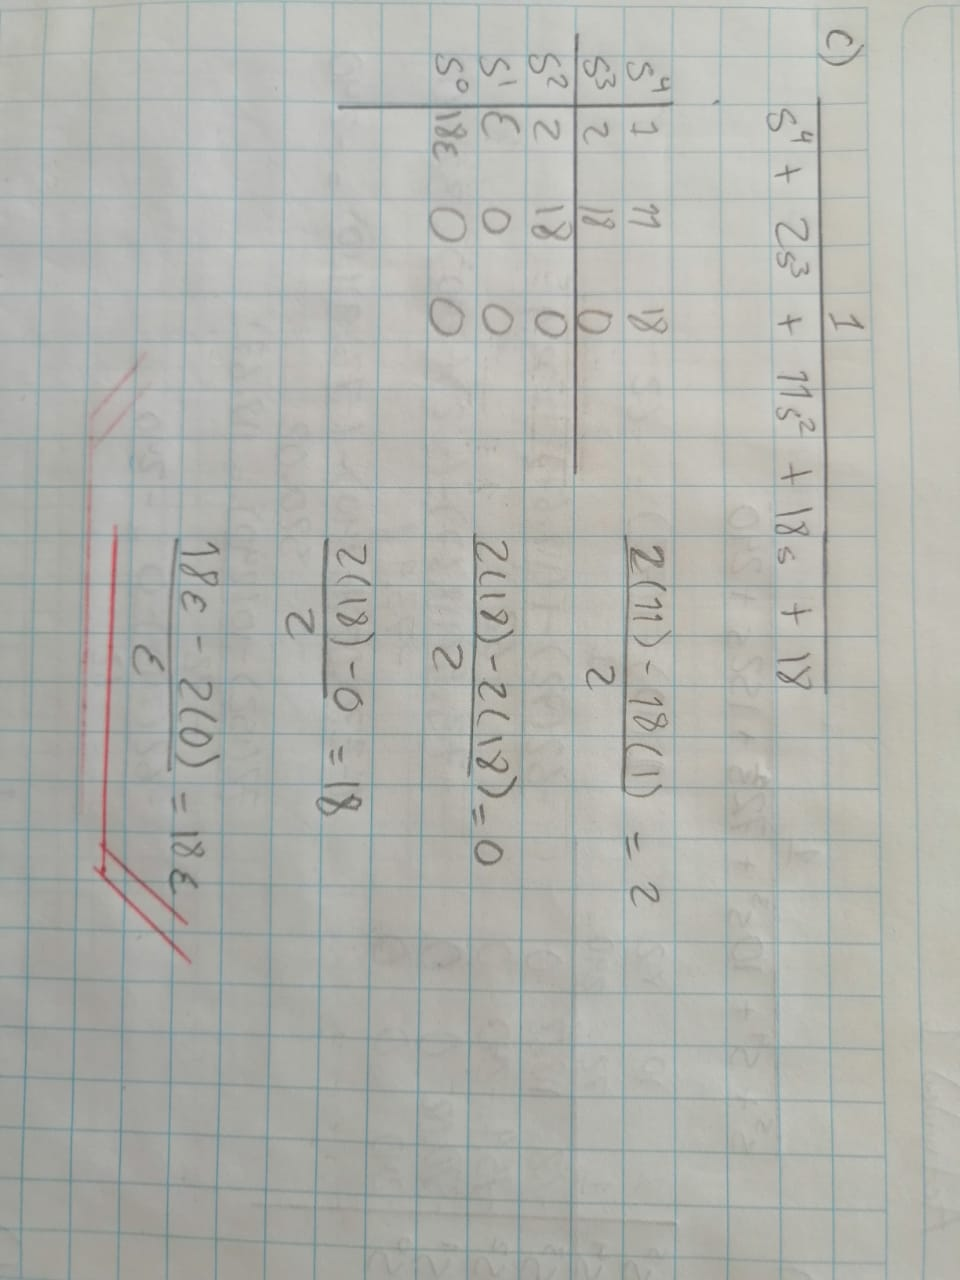 c)
1
s⁴ + 2s³ + 11s² + 18s + 18
s⁴ 1 11 18
s³ 2 18 0
s² 2 18 0
s¹ ε 0 0
s⁰ 18ε 0 0
2(11) - 18(1) = 2
2
2(18) - 2(18) = 0
2
2(18) - 0 = 18
2
18ε - 2(0) = 18ε
ε